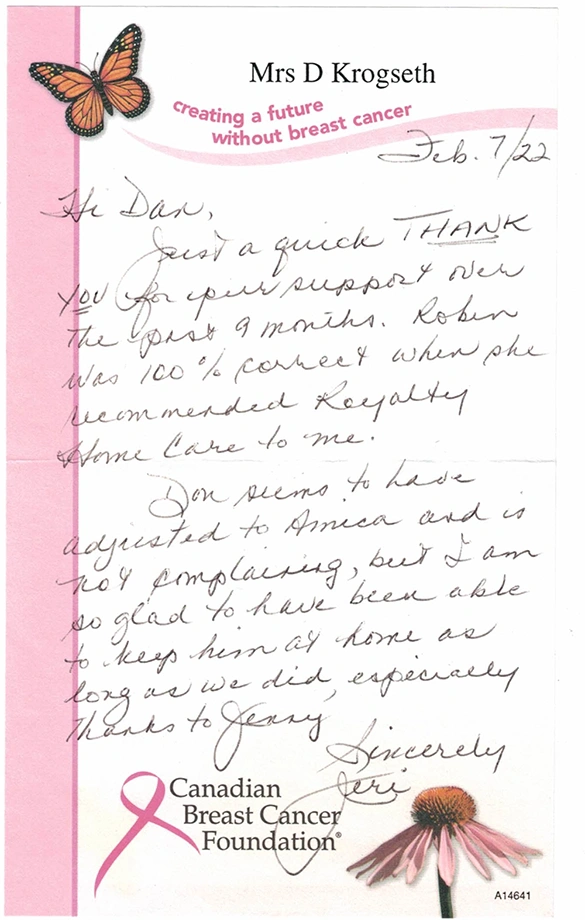 Mrs D Krogseth
creating a future
without breast cancer
Feb. 7/22
Hi Dan,
Just a quick THANK
YOU for your support over
the past 9 months. Robin
was 100% correct when she
recommended Royalty
Home Care to me.
Don seems to have
adjusted to Amica and is
not complaining, but I am
so glad to have been able
to keep him at home as
long as we did, especially
thanks to Jenny
Sincerely
Jeri
Canadian
Breast Cancer
Foundation®
A14641